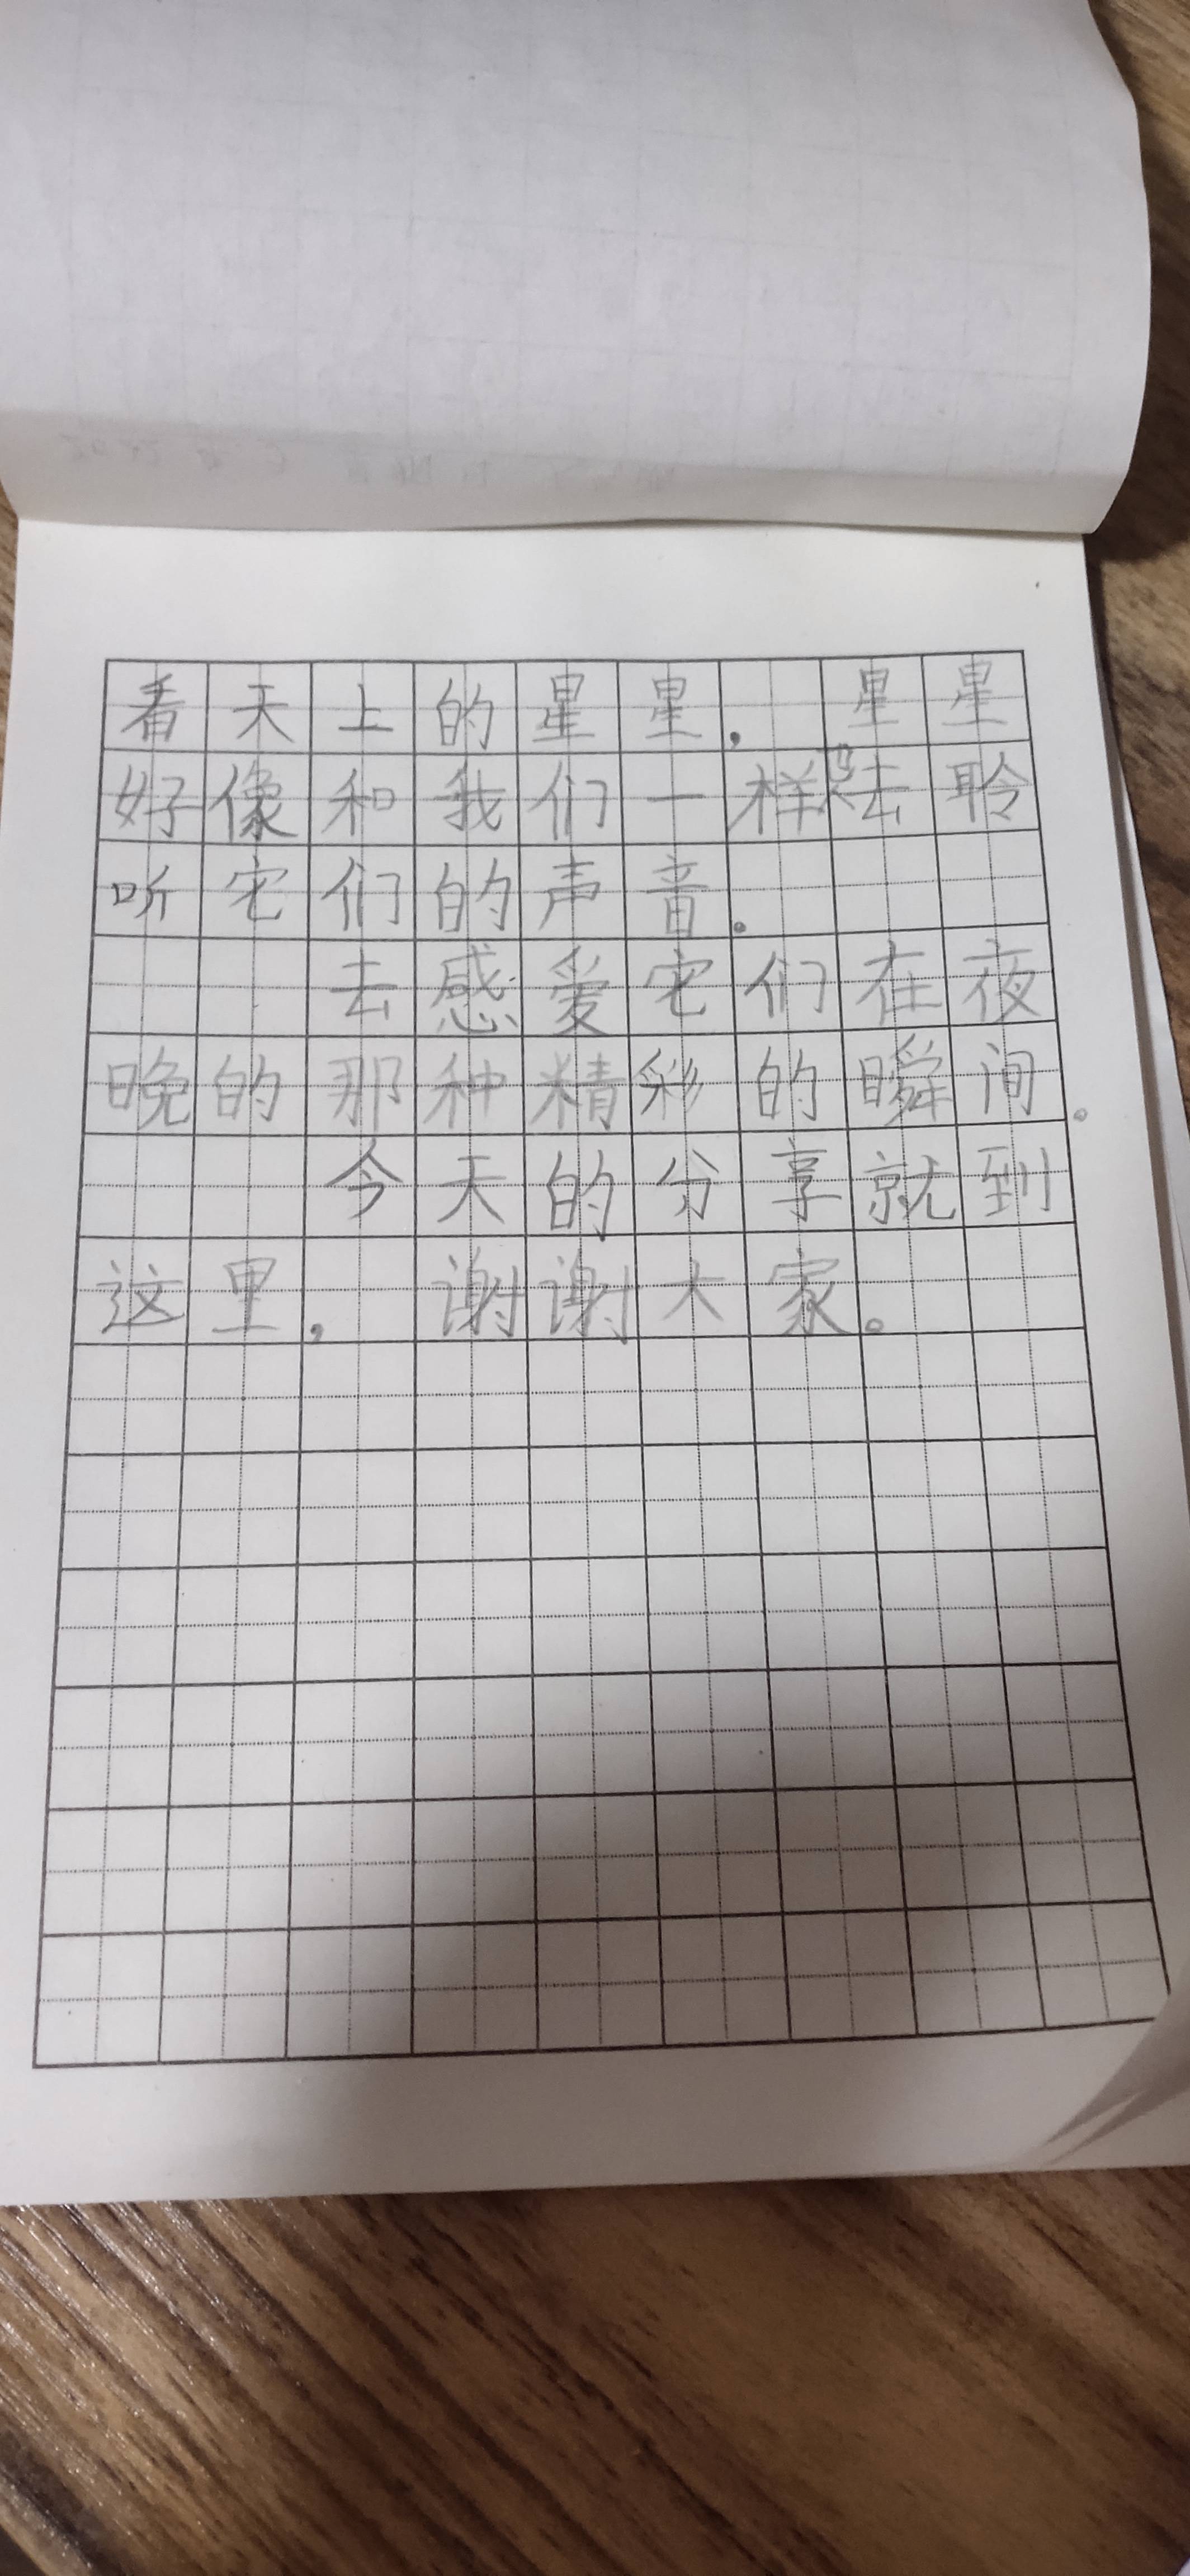 看天上的星星，星星
好像和我们一样去聆
听它们的声音。
去感爱它们在夜
晚的那种精彩的瞬间。
今天的分享就到
这里，谢谢大家。